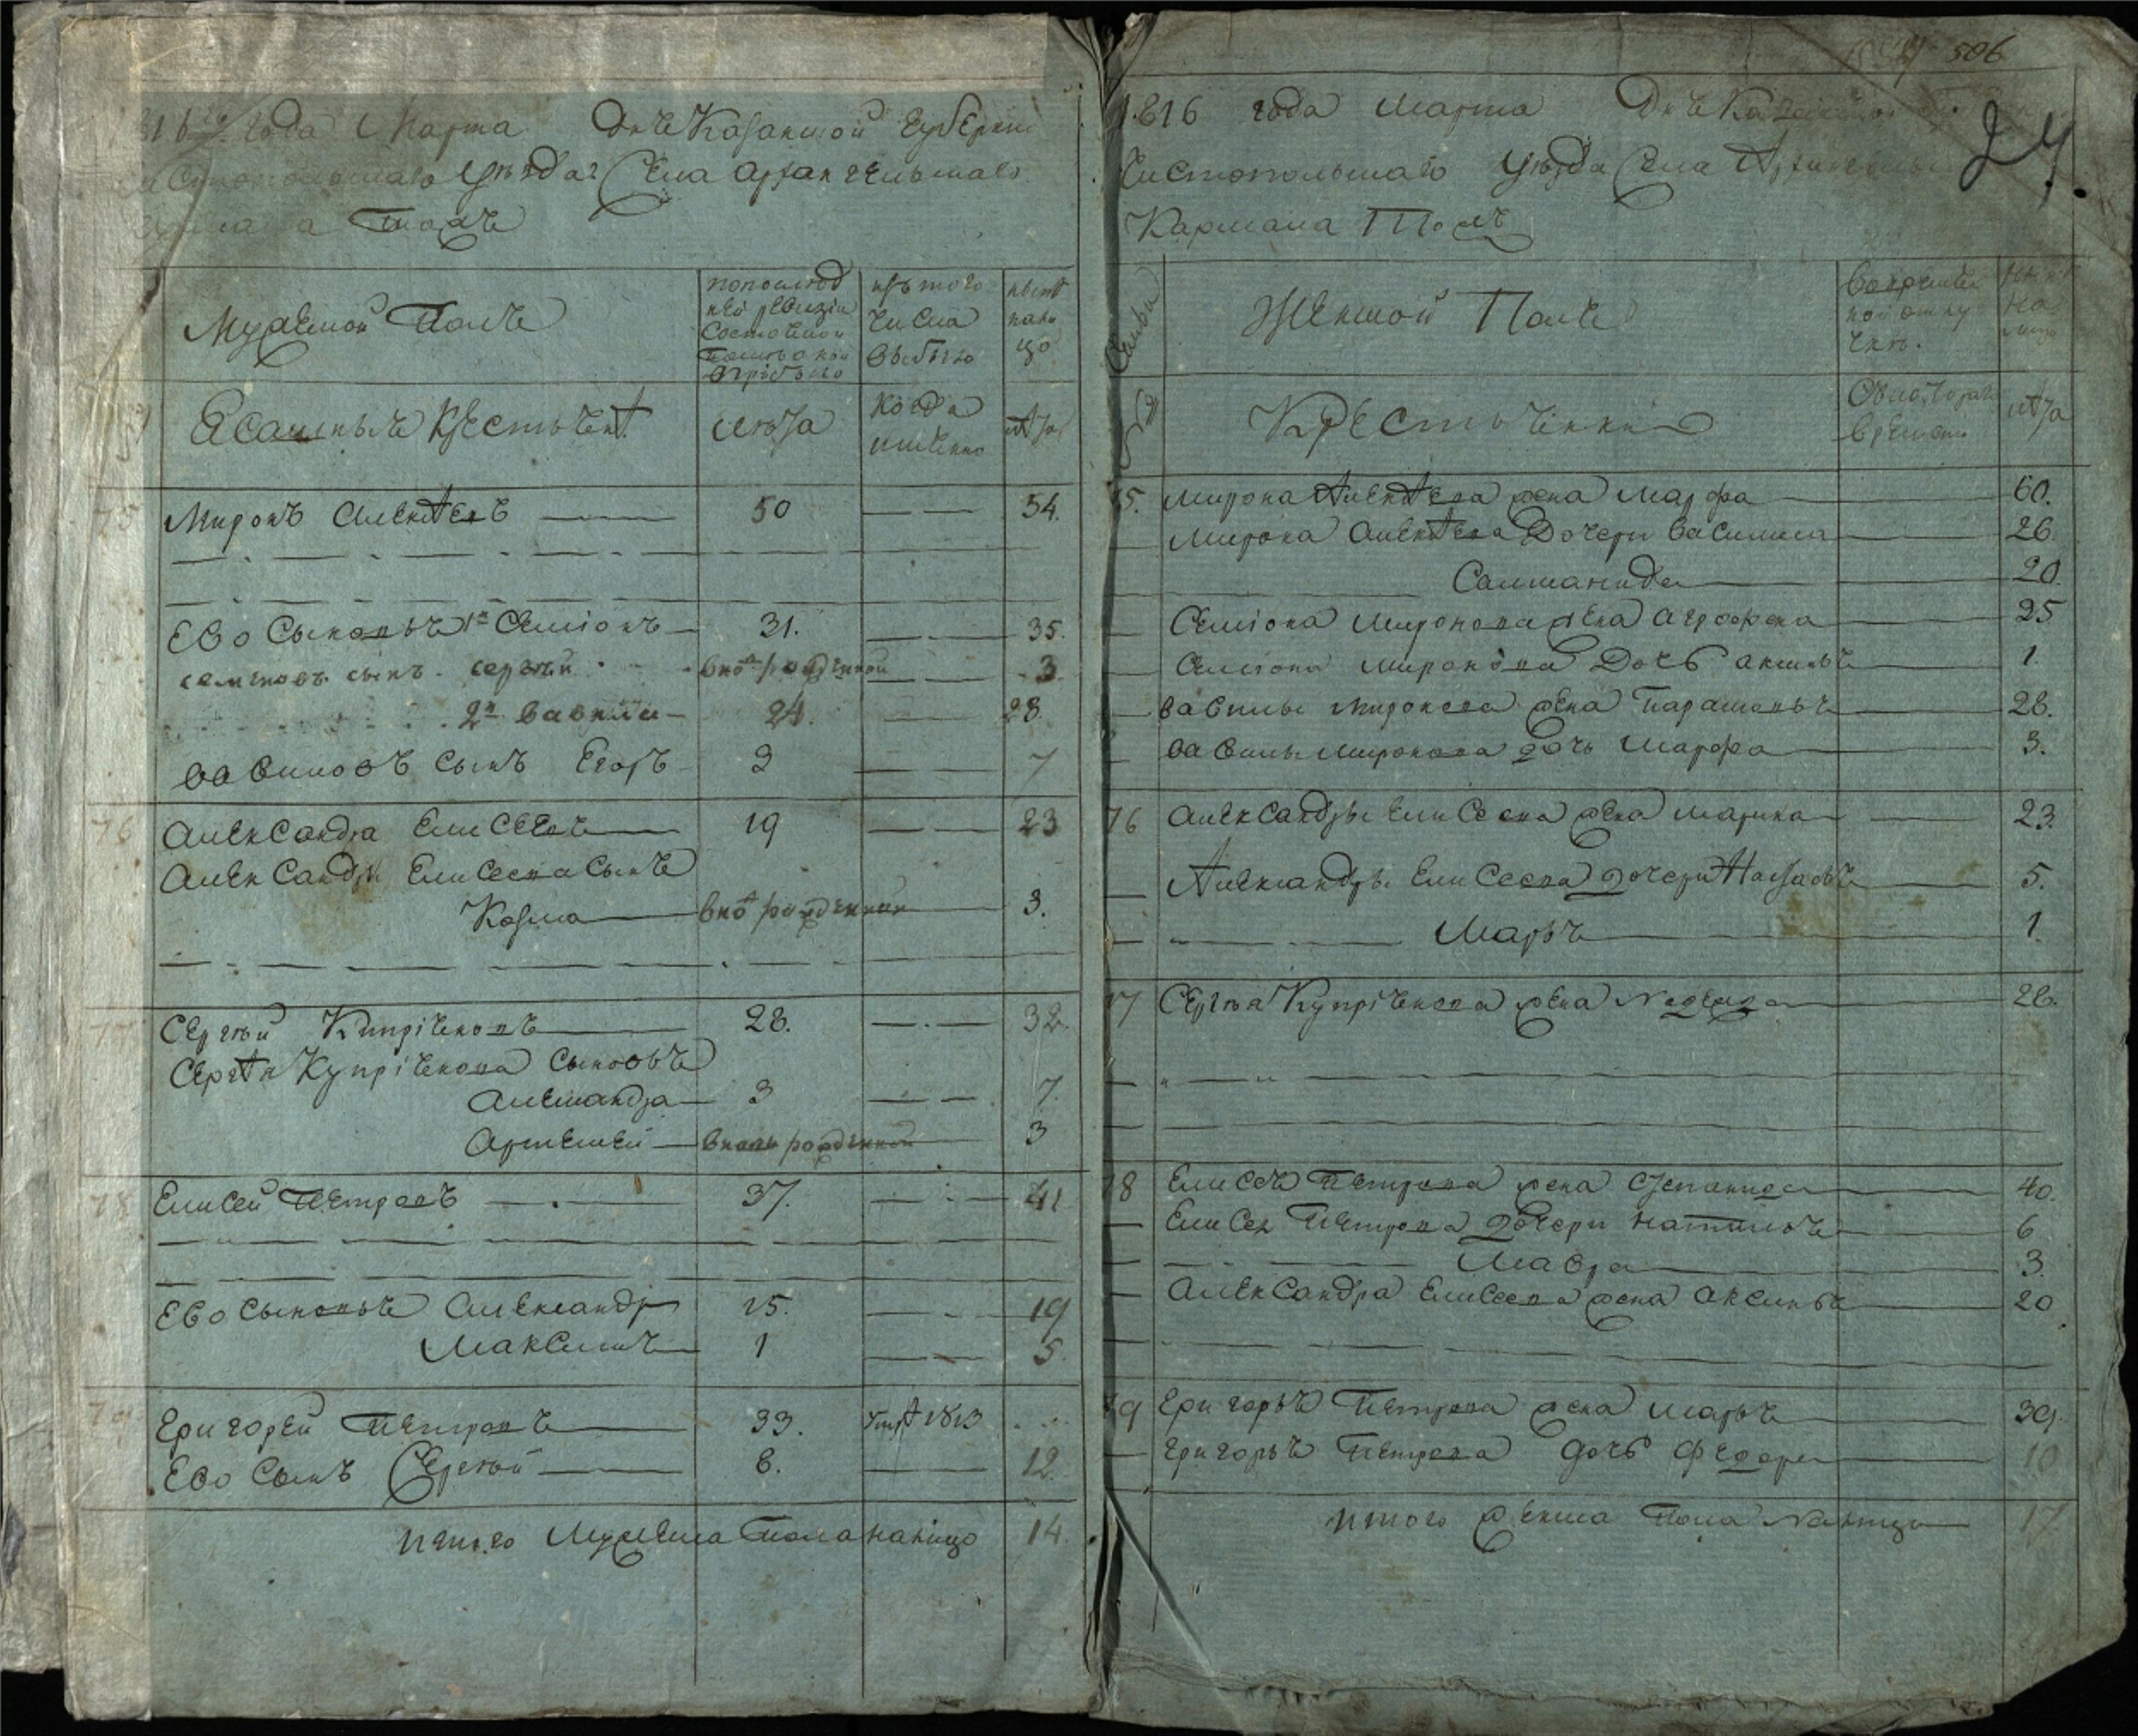 1816 года Марта дня Казанской Губернии
Чистопольскаго уезда Села Архангельскаго
тожъ
Мужеской Полъ
по последней ревизии состояло и после оной прибыло
изъ того числа выбыло
ныне на лицо
Ясашныхъ крестьянъ
лета
когда именно
лета
75 Миронъ Алексеевъ 50 — — 54.
Ево Сыновья 1й Семіонъ 31. — — 35.
семеновъ сынъ сергей вновь рожденной — — 3
2й вавила 24. — 28.
вавиловъ сынъ Егоръ 3 — — 7
76 Александра Елисеевъ 19 — — 23
Александры Елисеева сынъ
Козма вновь рожденной 3.
77 Сергей Купріяновъ 28. — . — 32
Сергея Купріянова сыновья
Александра 3 — — 7.
Артемей вновь рожденной 3
78 Елисей Петровъ — . — 37. — — 41
Ево Сыновья Александръ 15. — — 19
Максимъ 1 — — 5.
79 Григорей Петровъ 33. умре 1813
Ево Сынъ Сергей 8. — 12.
итого Мужеска пола налицо 14.
506
24.
1816 года Марта дня Казанской
Чистопольскаго уезда Села Архангельскаго
Кармала Тожъ
Семьи
Женской Полъ
во временной отлучке
ныне на лицо
Крестьянки
съ котораго времени
лета
75. Мирона Алексеева жена Марфа 60.
Мирона Алексеева Дочери Василиса 26.
Саломанида 20.
Семіона Миронова жена Аграфена 25
Семіона Миронова Дочь Аксинья 1.
вавилы Миронова жена Парасковья 28.
вавилы Миронова дочь Марфа 3.
76 Александры Елисеева жена Марина 23.
Александры Елисеева дочери Настасья 5.
Марья 1.
77 Сергея Купріянова жена Надежда 28.
78 Елисея Петрова жена Степанида 40.
Елисея Петрова дочери Наталья 6
Мавра 3.
Александра Елисеева жена Аксинья 20
79 Григорья Петрова жена Марья 39.
Григорья Петрова дочь Федора 10
итого женска Пола налицо 17.